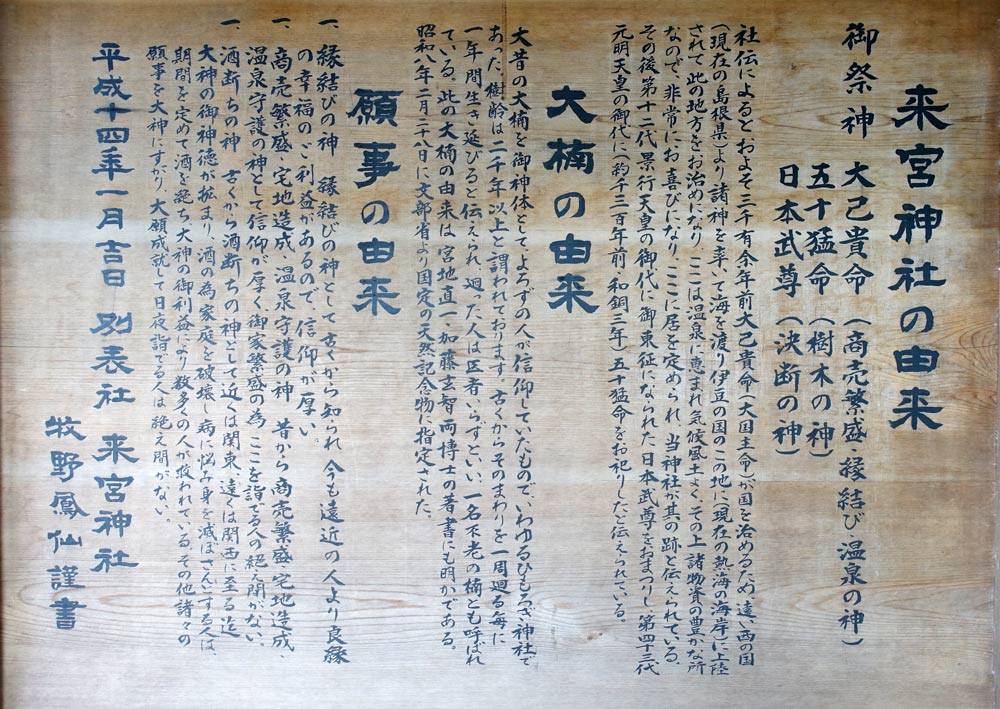 来宮神社の由来
御祭神　大己貴命（商売繁盛・縁結び・温泉の神）
五十猛命（樹木の神）
日本武尊（決断の神）
社伝によると、およそ三千有余年前大己貴命（大国主命）が国を治めるため、遠い西の国
（現在の島根県）より諸神を率いて海を渡り伊豆の国のこの地に（現在の熱海の海岸）に上陸
されて此の地方をお治めになり、ここは温泉に恵まれ気候風土よく、その上諸物資の豊かな所
なので、非常にお喜びになり、ここに居を定められ、当神社が其の跡と伝えられている。
その後第十二代景行天皇の御代に御東征になられた日本武尊をおまつりし、第四十三代
元明天皇の御代に（約千三百年前・和銅三年）五十猛命をお祀りしたと伝えられている。
大楠の由来
大昔の大楠を御神体として、よろずの人が信仰していたもので、いわゆるひもろぎ神社で
あった。樹齢は二千年以上と謂われております。古くからそのまわりを一周廻る毎に
一年間生き延びると伝えられ、廻った人は医者いらずといい、一名不老の楠とも呼ばれ
ている。此の大楠の由来は、宮地直一・加藤玄智両博士の著書にも明かである。
昭和八年二月二十八日に文部省より国定の天然記念物に指定された。
願事の由来
一、縁結びの神　縁結びの神として古くから知られ、今も遠近の人より良縁
の幸福のご利益があるので、信仰が厚い。
一、商売繁盛・宅地造成・温泉守護の神　昔から商売繁盛・宅地造成・
温泉守護の神として信仰が厚く御家繁盛の為ここを詣でる人の絶え間がない。
一、酒断ちの神　古くから酒断ちの神として近くは関東、遠くは関西に至る迄
大神の御神徳が拡まり、酒の為家庭を破壊し病に悩み身を滅ぼさんとする人は、
期間を定めて酒を絶ち大神の御利益により数多くの人が救われている。その他諸々の
願事を大神にすがり、大願成就して日夜詣でる人は絶え間がない。
平成十四年一月吉日　別表社　来宮神社
牧野鳳仙謹書